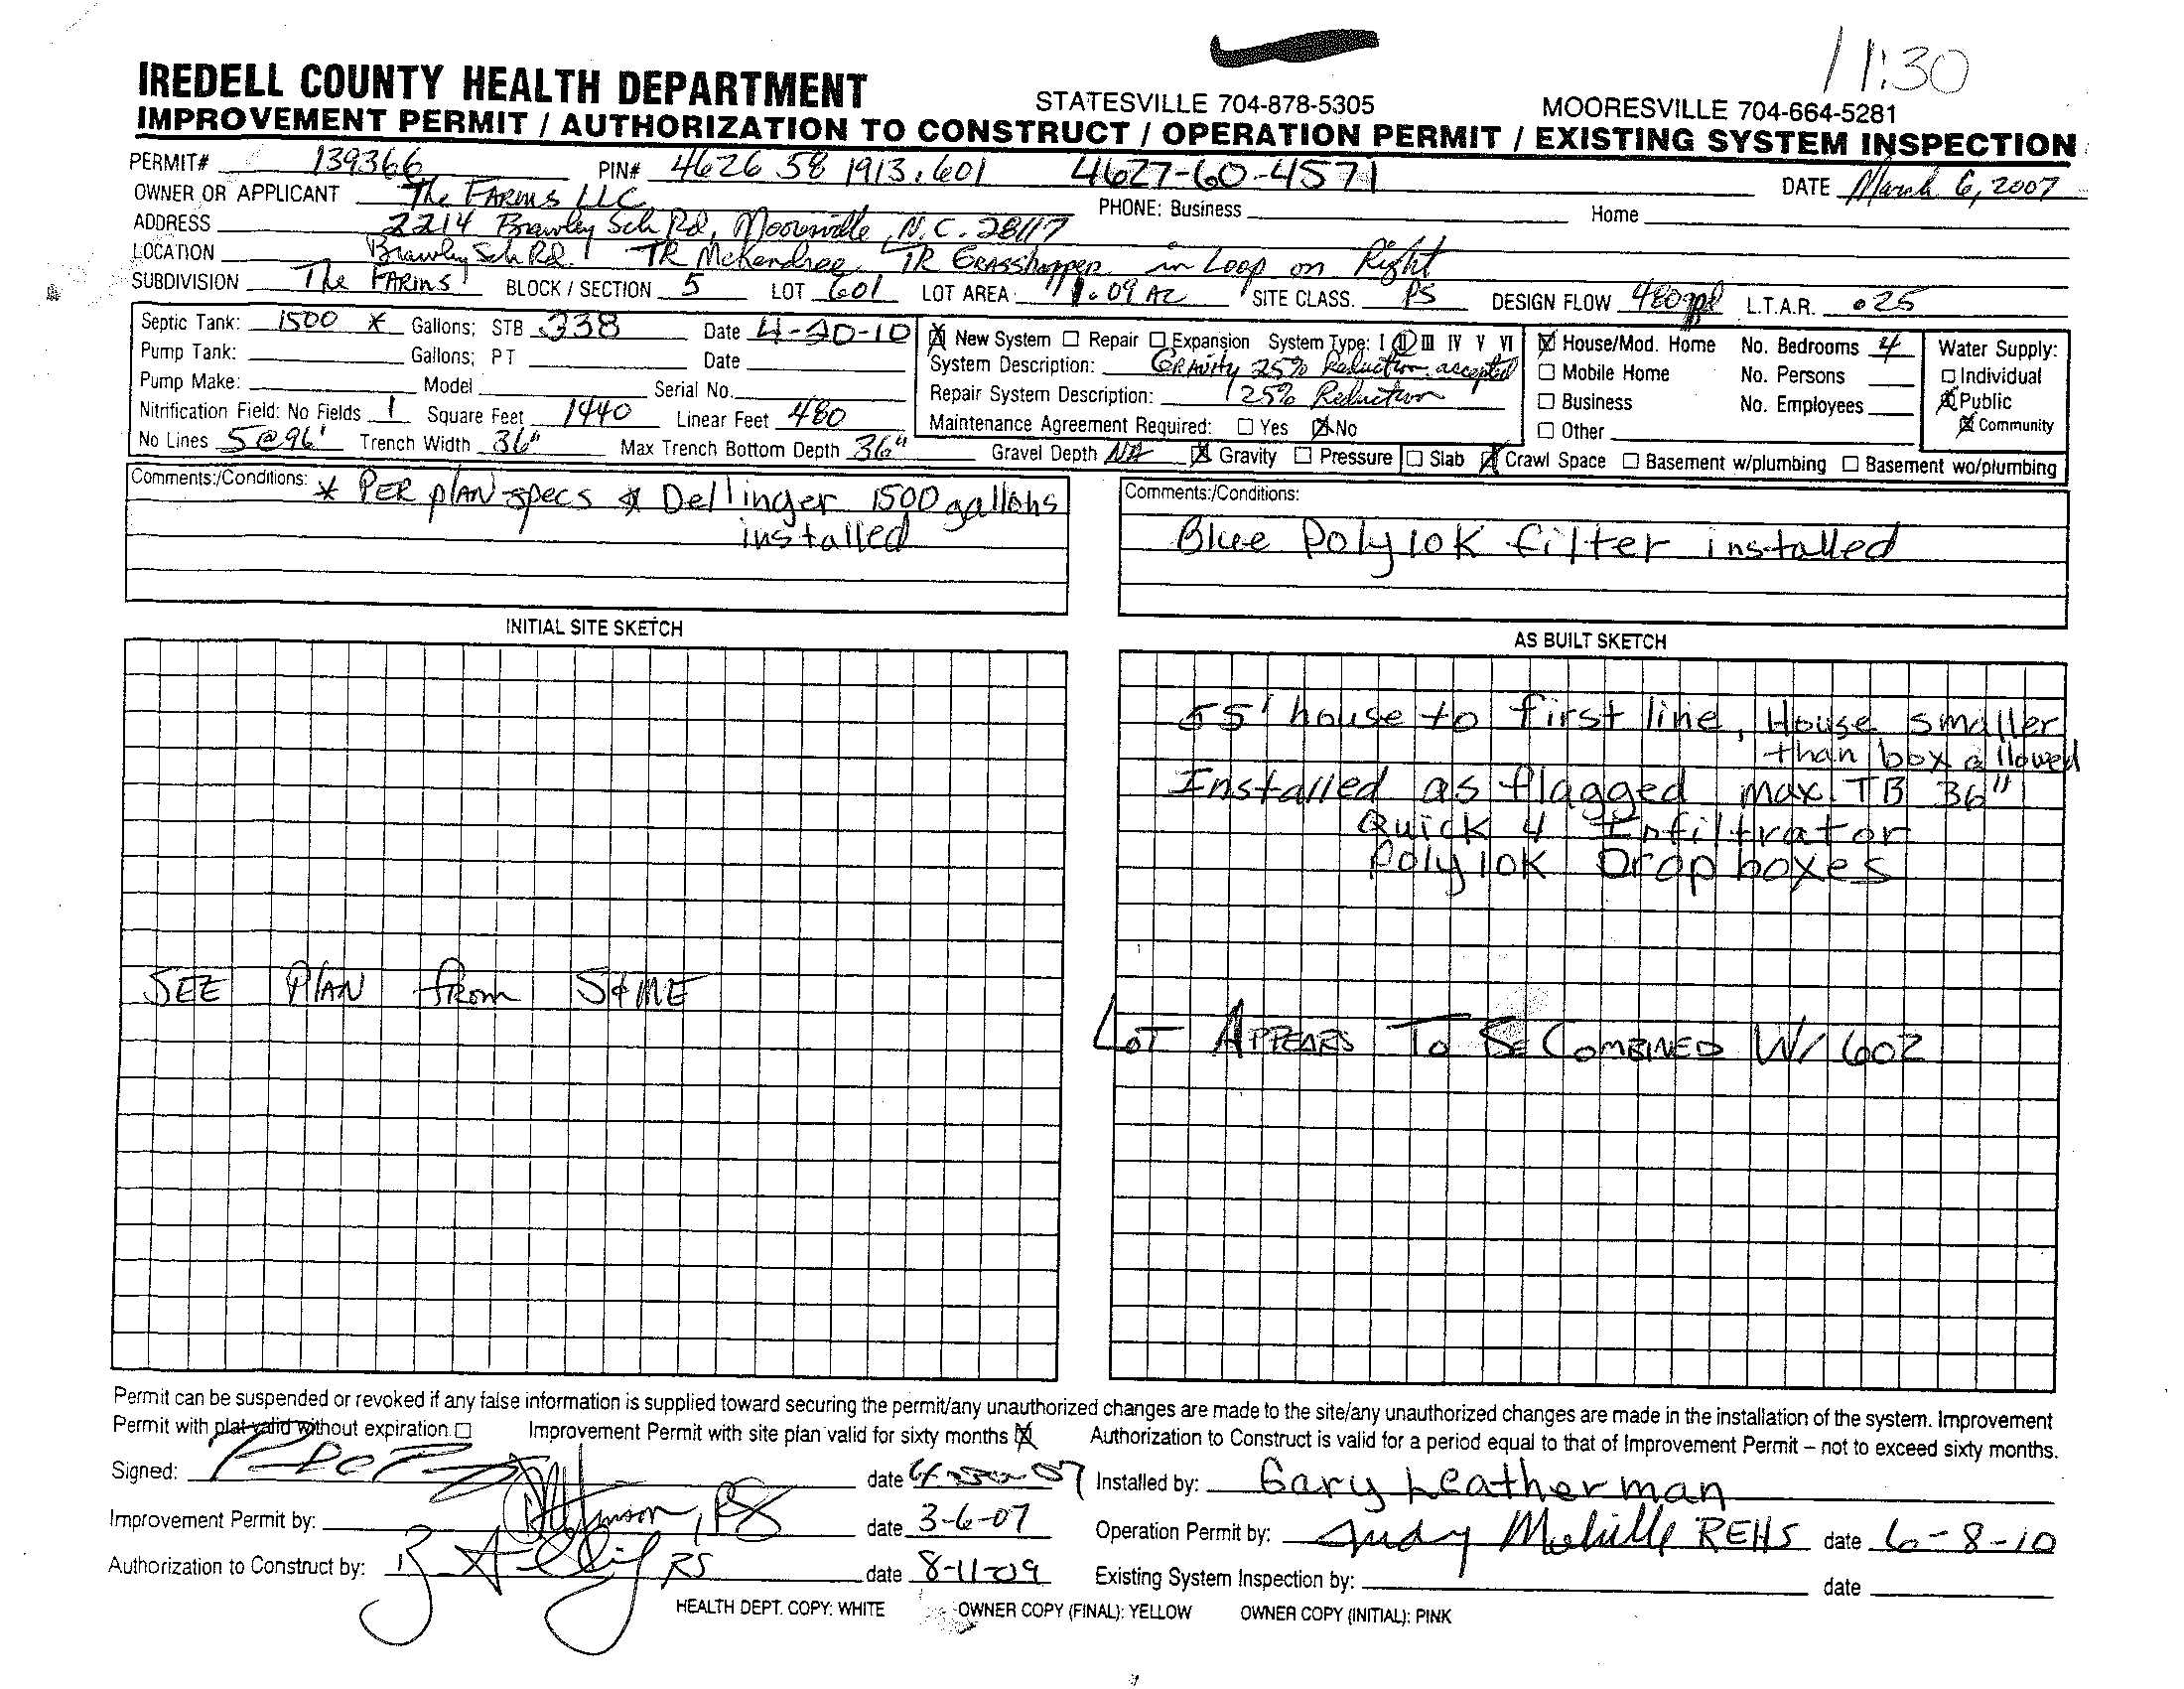 11:30
IREDELL COUNTY HEALTH DEPARTMENT
STATESVILLE 704-878-5305 MOORESVILLE 704-664-5281
IMPROVEMENT PERMIT / AUTHORIZATION TO CONSTRUCT / OPERATION PERMIT / EXISTING SYSTEM INSPECTION
PERMIT# 139366 PIN# 4626 58 1913.601 4627-60-4571 DATE March 6, 2007
OWNER OR APPLICANT The FARMS LLC PHONE: Business Home
ADDRESS 2214 Brawley Sch Rd, Mooresville, N.C. 28117
LOCATION Brawley Sch Rd. TR McKendree TR Grasshopper in Loop on Right
SUBDIVISION The FARMS BLOCK / SECTION 5 LOT 601 LOT AREA 1.09 AC SITE CLASS. PS DESIGN FLOW 480 gpd L.T.A.R. .025
Septic Tank: 1500 * Gallons; STB 338 Date 4-20-10
Pump Tank: Gallons; PT Date
Pump Make: Model Serial No.
Nitrification Field: No Fields 1 Square Feet 1440 Linear Feet 480
No Lines 5@96' Trench Width 36" Max Trench Bottom Depth 36" Gravel Depth NA Gravity Pressure Slab Crawl Space Basement w/plumbing Basement wo/plumbing
New System Repair Expansion System Type: I II III IV V VI
System Description: Gravity 25% Reduction accepted
Repair System Description: 25% Reduction
Maintenance Agreement Required: Yes No
House/Mod. Home No. Bedrooms 4
Mobile Home No. Persons
Business No. Employees
Other
Water Supply:
Individual
Public
Community
Comments:/Conditions: * PER plAN specs * Dellinger 1500 gallons
installed
Comments:/Conditions:
Blue Polylok filter installed
INITIAL SITE SKETCH
SEE PlAN from S&ME
AS BUILT SKETCH
55' house to first line, House smaller
than box allowed
Installed as flagged max. TB 36"
Quick 4 Infiltrator
Polylok Drop boxes
LOT APPEARS TO BE COMBINED W/ 602
Permit can be suspended or revoked if any false information is supplied toward securing the permit/any unauthorized changes are made to the site/any unauthorized changes are made in the installation of the system. Improvement
Permit with plat valid without expiration Improvement Permit with site plan valid for sixty months Authorization to Construct is valid for a period equal to that of Improvement Permit – not to exceed sixty months.
Signed: date Installed by: Gary Leatherman
Improvement Permit by: RS date 3-6-07 Operation Permit by: REHS date 6-8-10
Authorization to Construct by: RS date 8-11-09 Existing System Inspection by: date
HEALTH DEPT. COPY: WHITE OWNER COPY (FINAL): YELLOW OWNER COPY (INITIAL): PINK